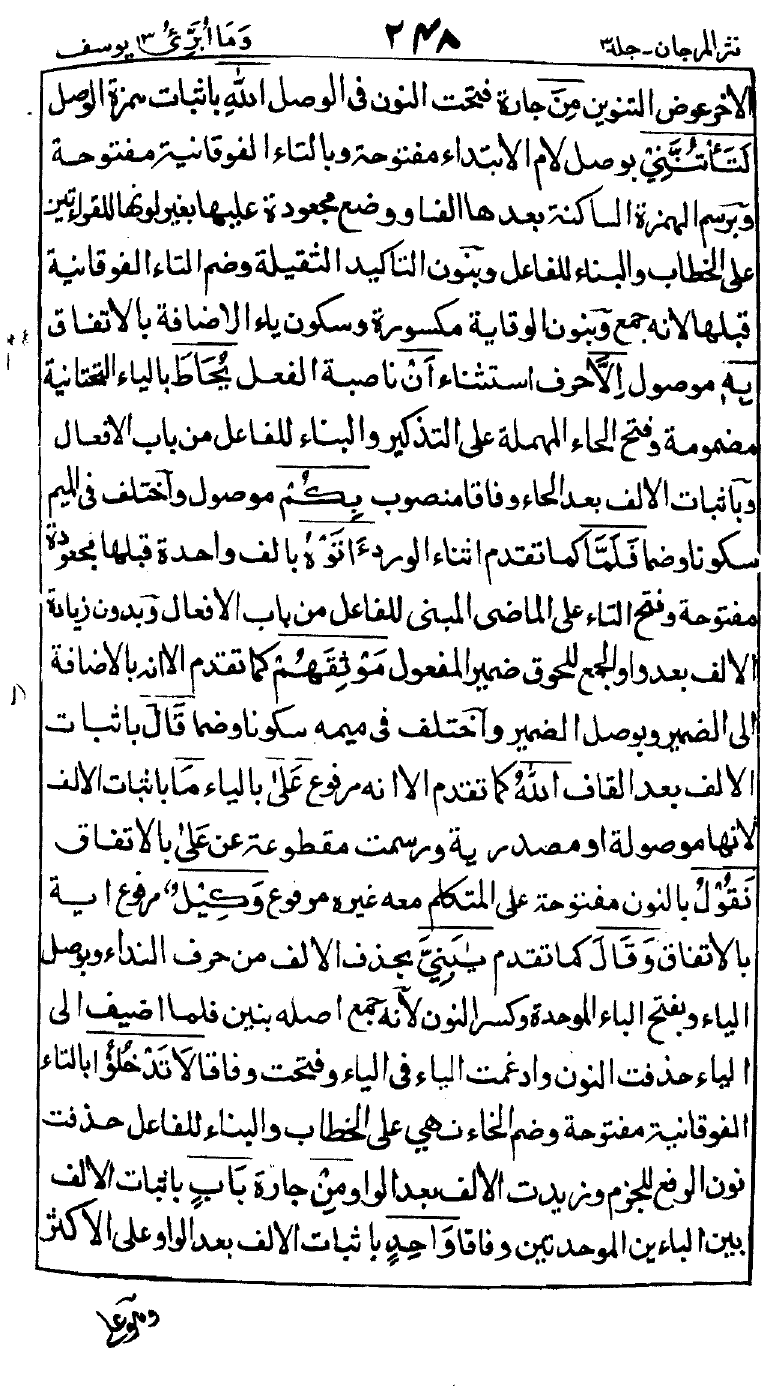 نثر المرجان - جلد ٣ ٢٤٨ وَمَا أُبَرِّئُ ١٣ يوسف
الاخر عوض التنوين مِنَ جارة فتحت النون فى الوصل اللهِ باثبات همزة الوصل
لَتَأْتُنَّنِيْ بوصل لام الابتداء مفتوحة وبالتاء الفوقانية مفتوحة
وبرسم الهمزة الساكنة بعدها الفا ووضع مجعودة عليها بغير لونها للقراءتين
على الخطاب والبناء للفاعل وبنون التاكيد الثقيلة وضم التاء الفوقانية
قبلها لانه جمع وبنون الوقاية مكسورة وسكون ياء الاضافة بالاتفاق
بِهٖ موصول اِلَّا حرف استثناء اَنْ ناصبة الفعل يُحَاطَ بالياء التحتانية
مضمومة وفتح الحاء المهملة على التذكير والبناء للفاعل من باب الافعال
وباثبات الالف بعد الحاء وفاقا منصوب بِكُمْ موصول واختلف فى الميم
سكونا وضما فَلَمَّا كما تقدم اثناء الورد ءَاتَوْهُ بالف واحدة قبلها مجعودة
مفتوحة وفتح التاء على الماضى المبنى للفاعل من باب الافعال وبدون زيادة
الالف بعد واو الجمع للحوق ضمير المفعول مَوْثِقَهُمْ كما تقدم الا انه بالاضافة
الى الضمير وبوصل الضمير واختلف فى ميمه سكونا وضما قَالَ باثبات
الالف بعد القاف اللهُ كما تقدم الا انه مرفوع عَلٰى بالياء مَا باثبات الالف
لانها موصولة او مصدرية ورسمت مقطوعة عن عَلٰى بالاتفاق
نَقُوْلُ بالنون مفتوحة على المتكلم معه غيره مرفوع وَكِيْلٌ مرفوع اية
بالاتفاق وَقَالَ كما تقدم يٰبَنِيَّ بحذف الالف من حرف النداء وبوصل
الياء وبفتح الباء الموحدة وكسر النون لانه جمع اصله بنين فلما اضيف الى
الياء حذفت النون وادغمت الياء فى الياء وفتحت وفاقا لَا تَدْخُلُوْا بالتاء
الفوقانية مفتوحة وضم الخاء نهي على الخطاب والبناء للفاعل حذفت
نون الرفع للجزم وزيدت الالف بعد الواو مِنْ جارة بَابٍ باثبات الالف
بين الباءين الموحدتين وفاقا وَاحِدٍ باثبات الالف بعد الواو على الاكثر